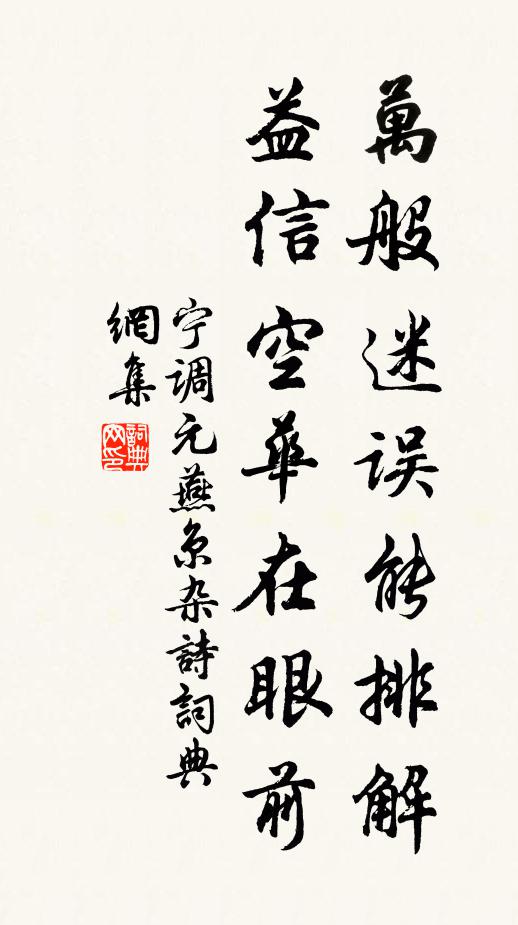 萬般迷误能排解
益信空華在眼前
宁調元燕京杂詩詞典
網集
詞典网印